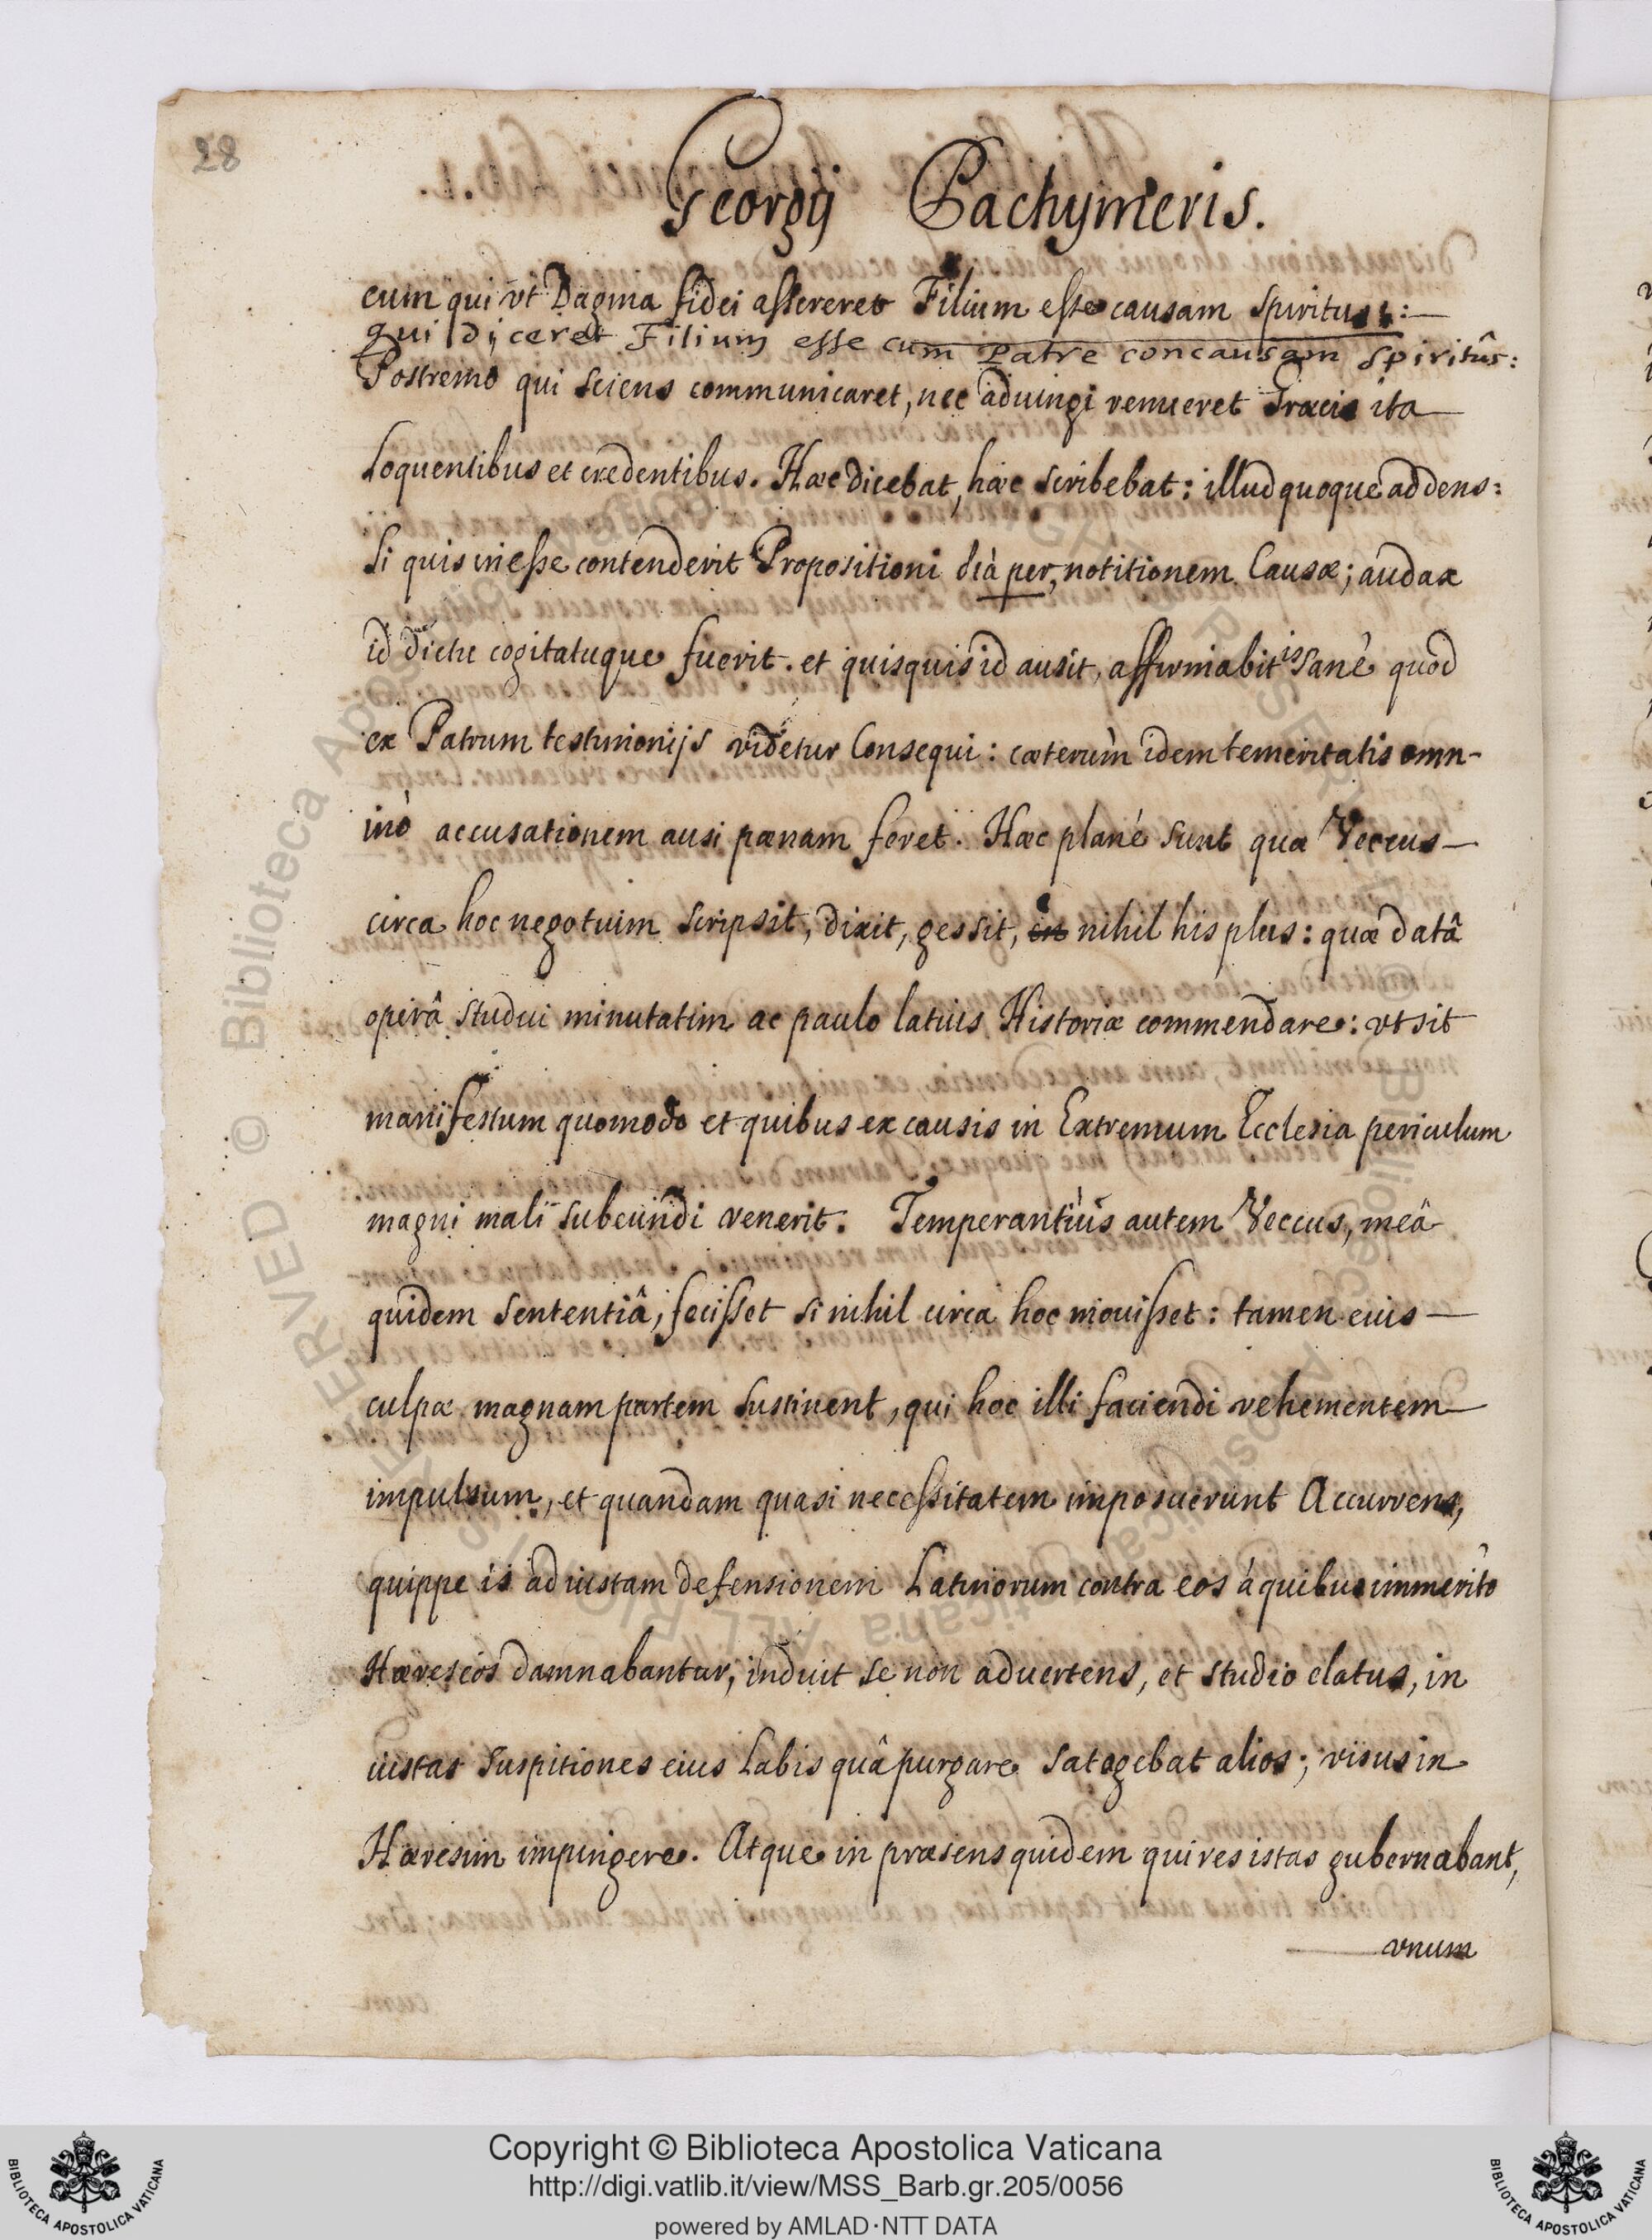 28
Georgij Pachymeris.
cum qui vt Dagma fidei assereret Filium esse causam Spiritus:
qui diceret Filium esse cum Patre concausam Spiritûs:
Postremo qui sciens communicaret, nec adiungi renueret Græcis ita
Loquentibus et credentibus. Hæc dicebat, hæc scribebat: illud quoque addens:
Si quis inesse contenderit Propositioni dià per, notitionem Causæ; audax
id dictu cogitatuque fuerit. et quisquis id ausit, affirmabit is sanè quod
ex Patrum testimonijs videtur Consequi: cæterùm idem temeritatis omn-
inò accusationem ausi pænam feret. Hæc planè sunt quæ Veccus
circa hoc negotium scripsit, dixit, gessit, nihil his plus: quæ datâ
operâ studui minutatim ac paulo latius Historiæ commendare: vt sit
manifestum quomodo et quibus ex causis in Extremum Ecclesia periculum
magni mali subeundi venerit. Temperantiùs autem Veccus, meâ
quidem sententiâ, fecisset si nihil circa hoc mouisset: tamen eius
culpæ magnam partem sustinent, qui hoc illi faciendi vehementem
impulsum, et quandam quasi necessitatem imposuerunt Accurrens,
quippe is ad iustam defensionem Latinorum contra eos à quibus immeritò
Hæreseos damnabantur, induit se non aduertens, et studio elatus, in
iustas suspitiones eius Labis quâ purgare satagebat alios; visus in
Hæresim impingere. Atque in præsens quidem qui res istas gubernabant,
vnum
Copyright © Biblioteca Apostolica Vaticana
http://digi.vatlib.it/view/MSS_Barb.gr.205/0056
powered by AMLAD·NTT DATA
BIBLIOTECA APOSTOLICA VATICANA
BIBLIOTECA APOSTOLICA VATICANA